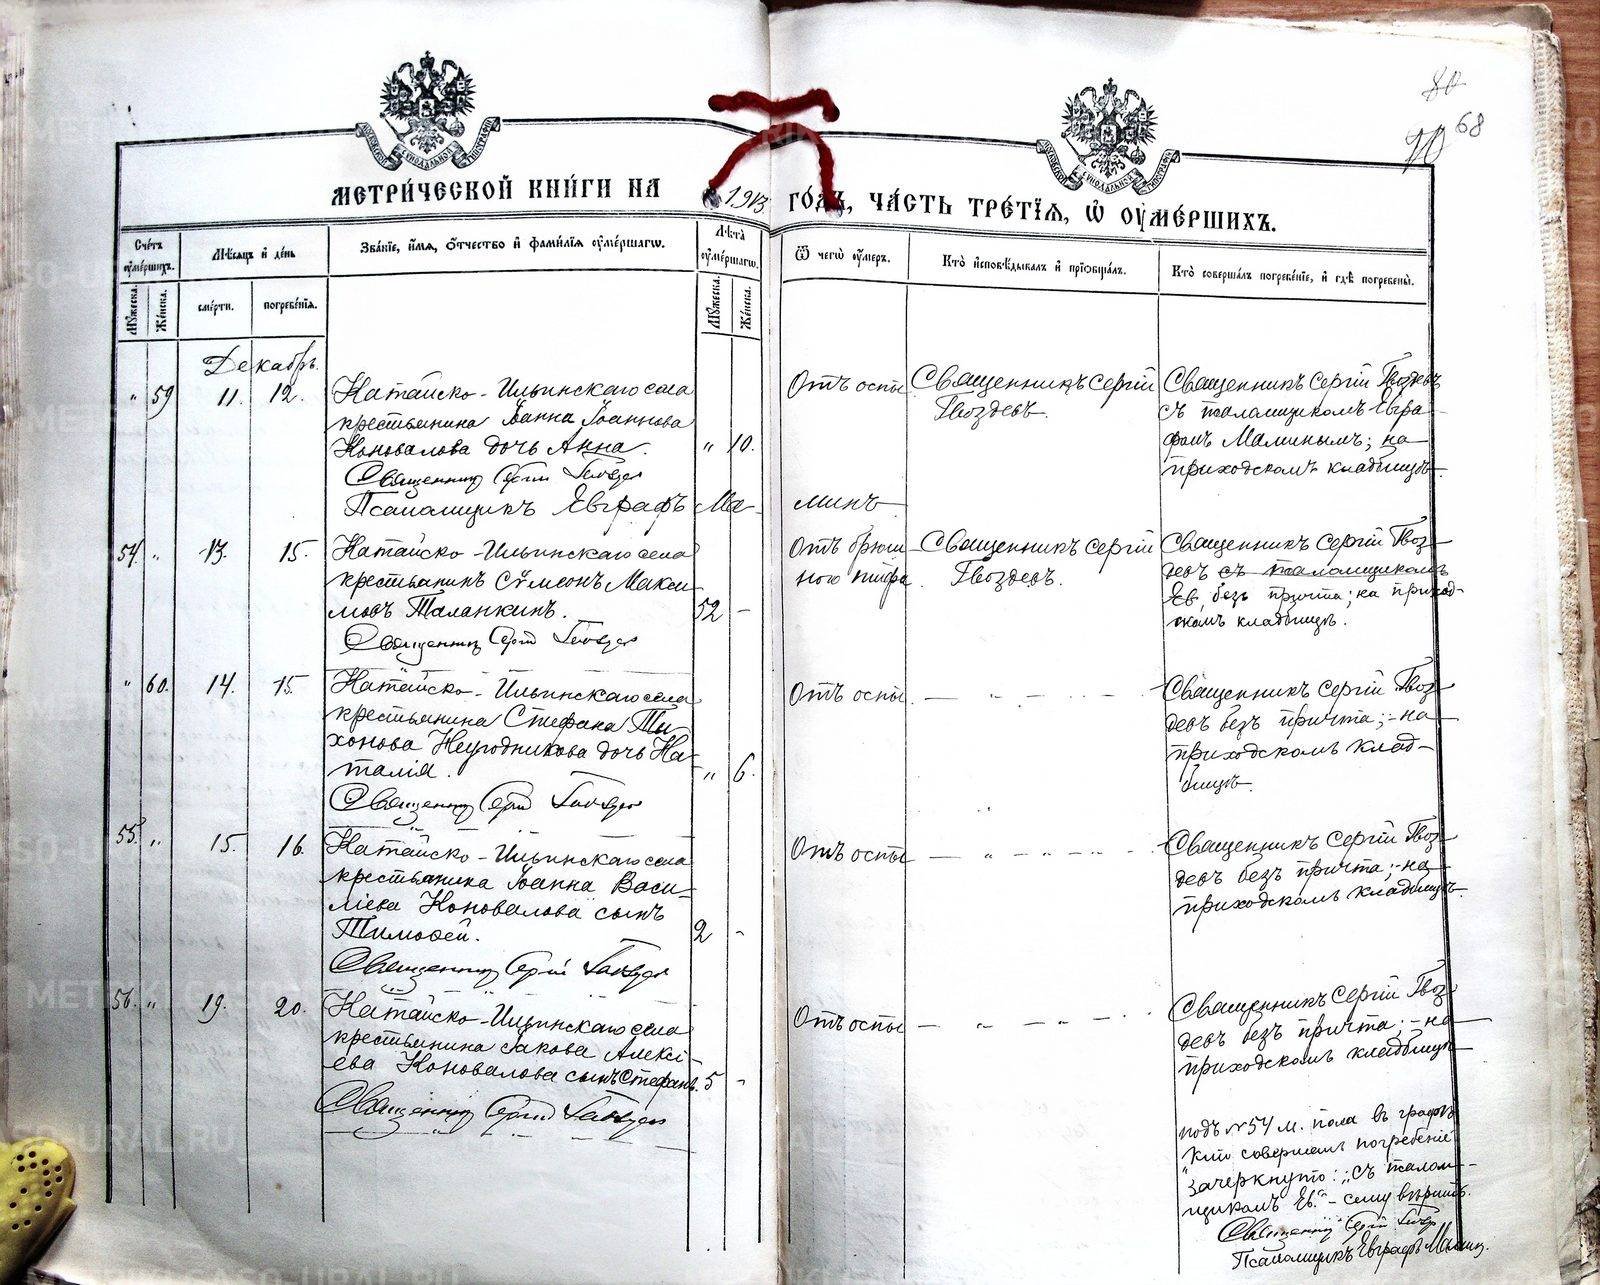 80
70 68
МОСКОВСКОЙ СѴНОДАЛЬНОЙ ТИПОГРАФІИ
МОСКОВСКОЙ СѴНОДАЛЬНОЙ ТИПОГРАФІИ
МЕТРИ́ЧЕСКОЙ КНИ́ГИ НА 1913 ГО́ДЪ, ЧА́СТЬ ТРЕ́ТЇѦ, Ѡ҆ ОУ҆МЕ́РШИХЪ.
Сче́тъ оу҆ме́ршихъ.
Мꙋ́жеска. Же́нска.
Мѣ́сѧцъ и҆ де́нь
сме́рти. погребе́нїѧ.
Зва́нїе, и҆́мѧ, ѻ҆́тчество и҆ фами́лїѧ оу҆ме́ршагѡ.
Лѣ́та оу҆ме́ршагѡ.
Мꙋ́жеска. Же́нска.
Ѿ чегѡ̀ оу҆́меръ.
Кто̀ и҆сповѣ́дывалъ и҆ прїѻбща́лъ.
Кто̀ соверша́лъ погребе́нїе, и҆ гдѣ̀ погребены̀.
Декабрь.
" 59 11. 12.
Катайско-Ильинскаго села
крестьянина Іоанна Іоаннова
Коновалова дочь Анна. " 10.
Священникъ Сергій Гвоздев
Псаломщикъ Евграфъ Ма-
минъ
Отъ оспы
Священникъ Сергій
Гвоздевъ.
Священникъ Сергій Гвоздевъ
съ псаломщикомъ Евгра-
фомъ Маминымъ; на
приходскомъ кладбищѣ
54. " 13. 15.
Катайско-Ильинскаго села
крестьянинъ Сѵмеонъ Макси-
мовъ Таланкинъ. 52 -
Священникъ Сергій Гвоздев
Отъ брюш-
ного тифа
Священникъ Сергій
Гвоздевъ.
Священникъ Сергій Гвоз-
девъ съ псаломщикомъ
Ев. безъ причта; на приход-
скомъ кладбищѣ.
" 60. 14. 15.
Катайско-Ильинскаго села
крестьянина Стефана Ти-
хонова Неугодникова дочь На-
талія. " 6.
Священникъ Сергій Гвоздев
Отъ оспы — " — " — " —
Священникъ Сергій Гвоз-
девъ безъ причта; - на
приходскомъ клад-
бищѣ.
55. " 15. 16.
Катайско-Ильинскаго села
крестьянина Іоанна Васи-
ліева Коновалова сынъ
Тимофей. 2 -
Священникъ Сергій Гвоздев
Отъ оспы — " — " — " —
Священникъ Сергій Гвоз-
девъ безъ причта; - на
приходскомъ кладбищѣ.
56. " 19. 20.
Катайско-Ильинскаго села
крестьянина Іакова Алексі-
ева Коновалова сынъ Стефанъ. 5 -
Священникъ Сергій Гвоздев
Отъ оспы — " — " — " —
Священникъ Сергій Гвоз-
девъ безъ причта; - на
приходскомъ кладбищѣ
подъ №54 м. пола въ графѣ
"Кто совершалъ погребеніе"
зачеркнуто: „съ псалом-
щикомъ Ев." - сему вѣрить.
Священникъ Сергій Гвозд
Псаломщикъ Евграфъ Мамин.